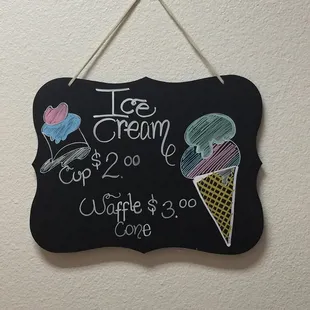 Ice
Cream
Cup $2.00
Waffle $3.00
Cone